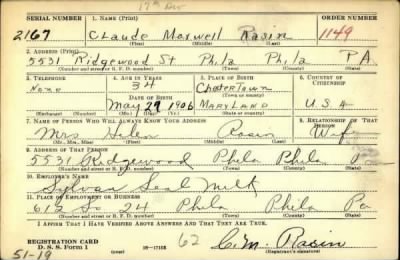 17th Div
SERIAL NUMBER 1. NAME (Print) ORDER NUMBER
2167 CLaude Maxwell Rasin 1149
(First) (Middle) (Last)
2. ADDRESS (Print)
5531 Ridgewood St Phila Phila PA.
(Number and street or R. F. D. number) (Town) (County) (State)
3. TELEPHONE 4. AGE IN YEARS 5. PLACE OF BIRTH 6. COUNTRY OF CITIZENSHIP
None 34 ChesterTown
DATE OF BIRTH (Town or county)
May 29 1906 MARYLAND U.S.A
(Exchange) (Number) (Mo.) (Day) (Yr.) (State or country)
7. NAME OF PERSON WHO WILL ALWAYS KNOW YOUR ADDRESS 8. RELATIONSHIP OF THAT PERSON
Mrs Helen Rasin Wife
(Mr., Mrs., Miss) (First) (Middle) (Last)
9. ADDRESS OF THAT PERSON
5531 Ridgewood Phila Phila
(Number and street or R. F. D. number) (Town) (County) (State)
10. EMPLOYER'S NAME
Sylvan Seal Milk
11. PLACE OF EMPLOYMENT OR BUSINESS
612 So 24 Phila Phila Pa
(Number and street or R. F. D. number) (Town) (County) (State)
I AFFIRM THAT I HAVE VERIFIED ABOVE ANSWERS AND THAT THEY ARE TRUE.
REGISTRATION CARD
D. S. S. Form 1 16—17105 62 C.M. Rasin
51-19 (Registrant's signature)